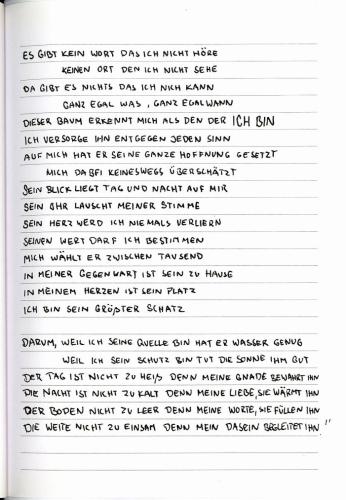 ES GIBT KEIN WORT DAS ICH NICHT HÖRE
KEINEN ORT DEN ICH NICHT SEHE
DA GIBT ES NICHTS DAS ICH NICH KANN
GANZ EGAL WAS, GANZ EGAL WANN
DIESER BAUM ERKENNT MICH ALS DEN DER ICH BIN
ICH VERSORGE IHN ENTGEGEN JEDEN SINN
AUF MICH HAT ER SEINE GANZE HOFFNUNG GESETZT
MICH DABEI KEINESWEGS ÜBERSCHÄTZT
SEIN BLICK LIEGT TAG UND NACHT AUF MIR
SEIN OHR LAUSCHT MEINER STIMME
SEIN HERZ WERD ICH NIEMALS VERLIERN
SEINEN WERT DARF ICH BESTIMMEN
MICH WÄHLT ER ZWISCHEN TAUSEND
IN MEINER GEGENWART IST SEIN ZU HAUSE
IN MEINEM HERZEN IST SEIN PLATZ
ICH BIN SEIN GRÖßTER SCHATZ
DARUM, WEIL ICH SEINE QUELLE BIN HAT ER WASSER GENUG
WEIL ICH SEIN SCHUTZ BIN TUT DIE SONNE IHM GUT
DER TAG IST NICHT ZU HEIß DENN MEINE GNADE BEWAHRT IHN
DIE NACHT IST NICHT ZU KALT DENN MEINE LIEBE, SIE WÄRMT IHN
DER BODEN NICHT ZU LEER DENN MEINE WORTE, SIE FÜLLEN IHN
DIE WEITE NICHT ZU EINSAM DENN MEIN DASEIN BEGLEITET IHN"